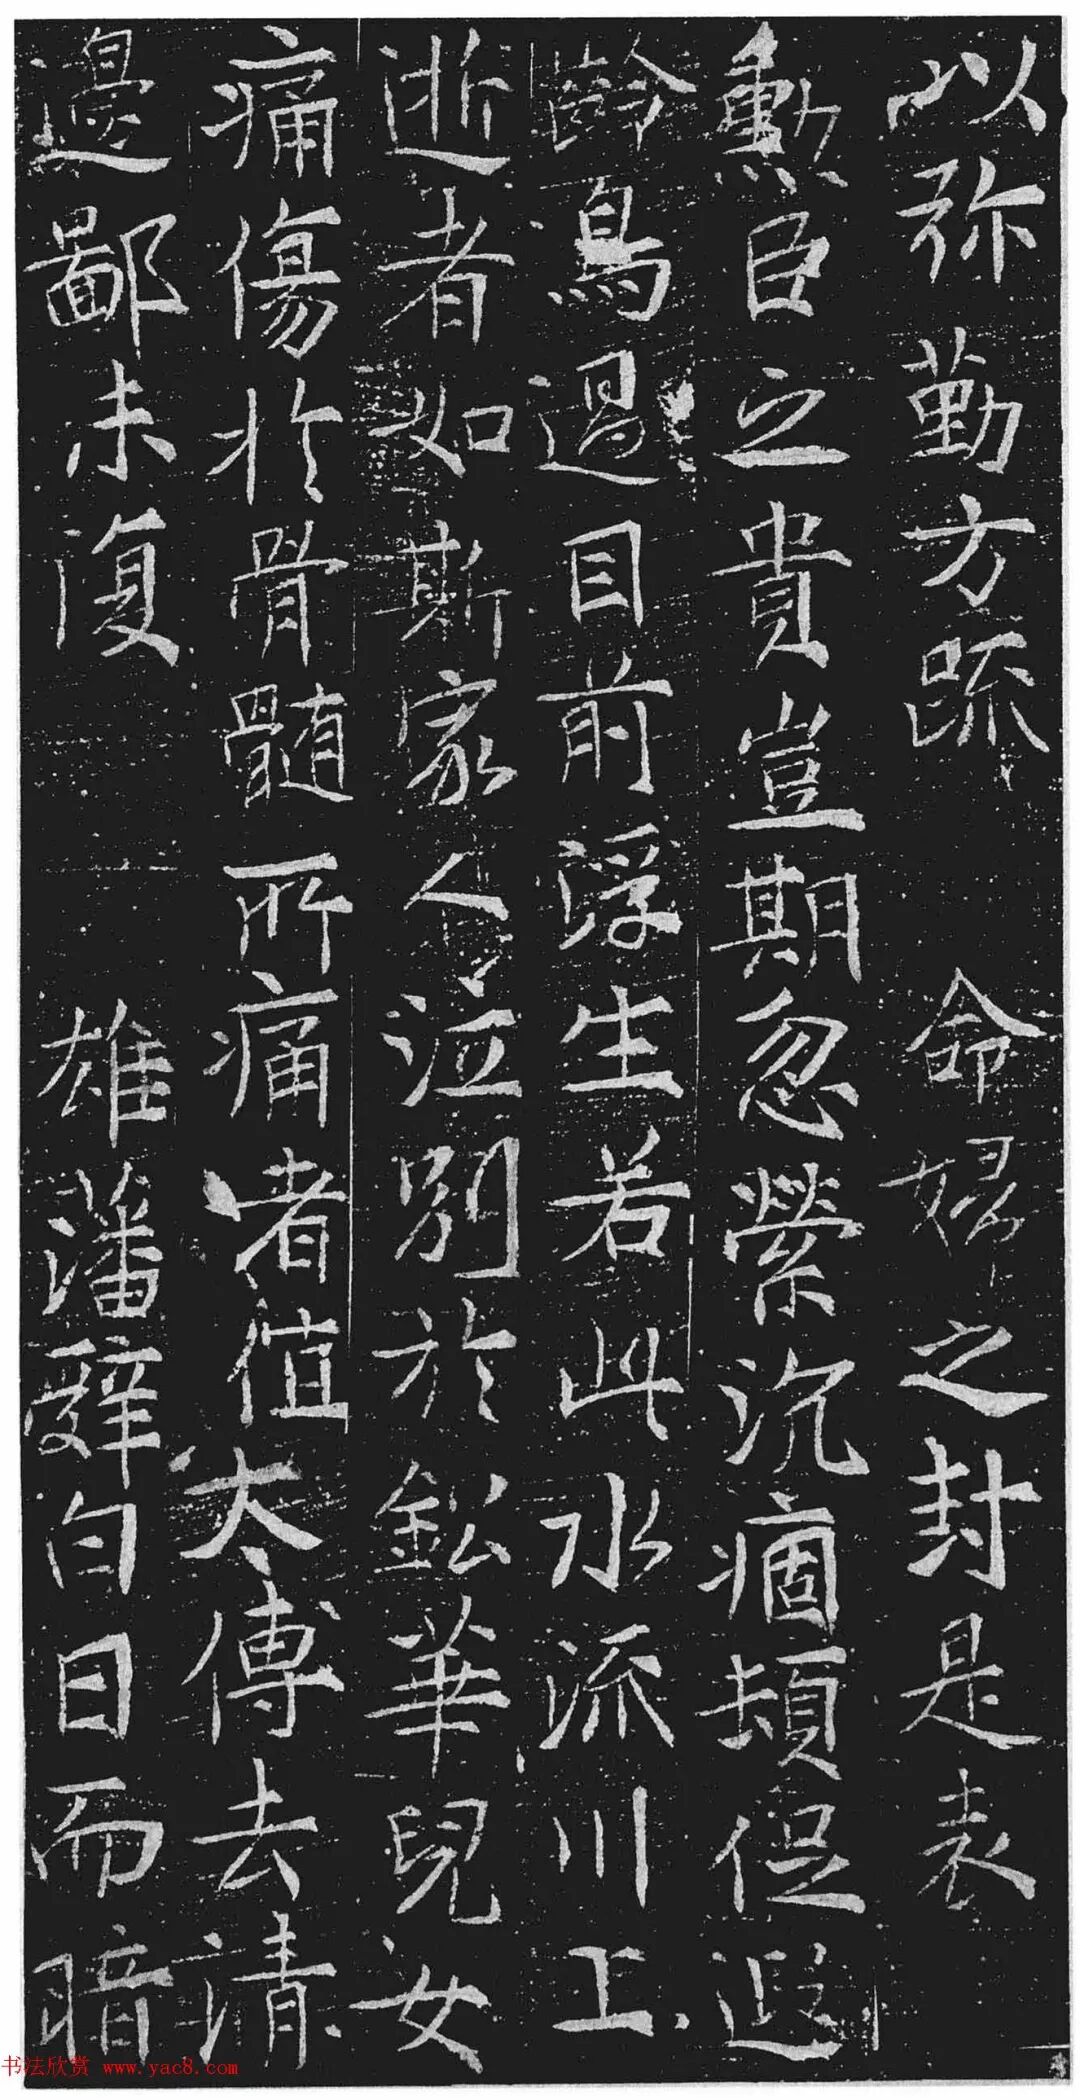 以弥勤方疏　命婦之封是表
勲臣之貴豈期忽縈沉痼頓促遐
齡鳥過目前浮生若此水流川上
逝者如斯家人泣別於鈆華兒女
痛傷於骨髓所痛者值太傅去清
邊鄙未復　雄藩辭白日而暗
书法欣赏 www.yac8.com